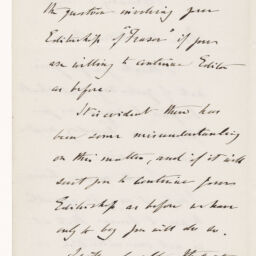 the question involving your
Editorship of "Fraser" if you
are willing to continue Editor
as before.
It is evident there has
been some misunderstanding
on this matter, and if it will
suit you to continue your
Editorship as before we have
only to beg you will do so.